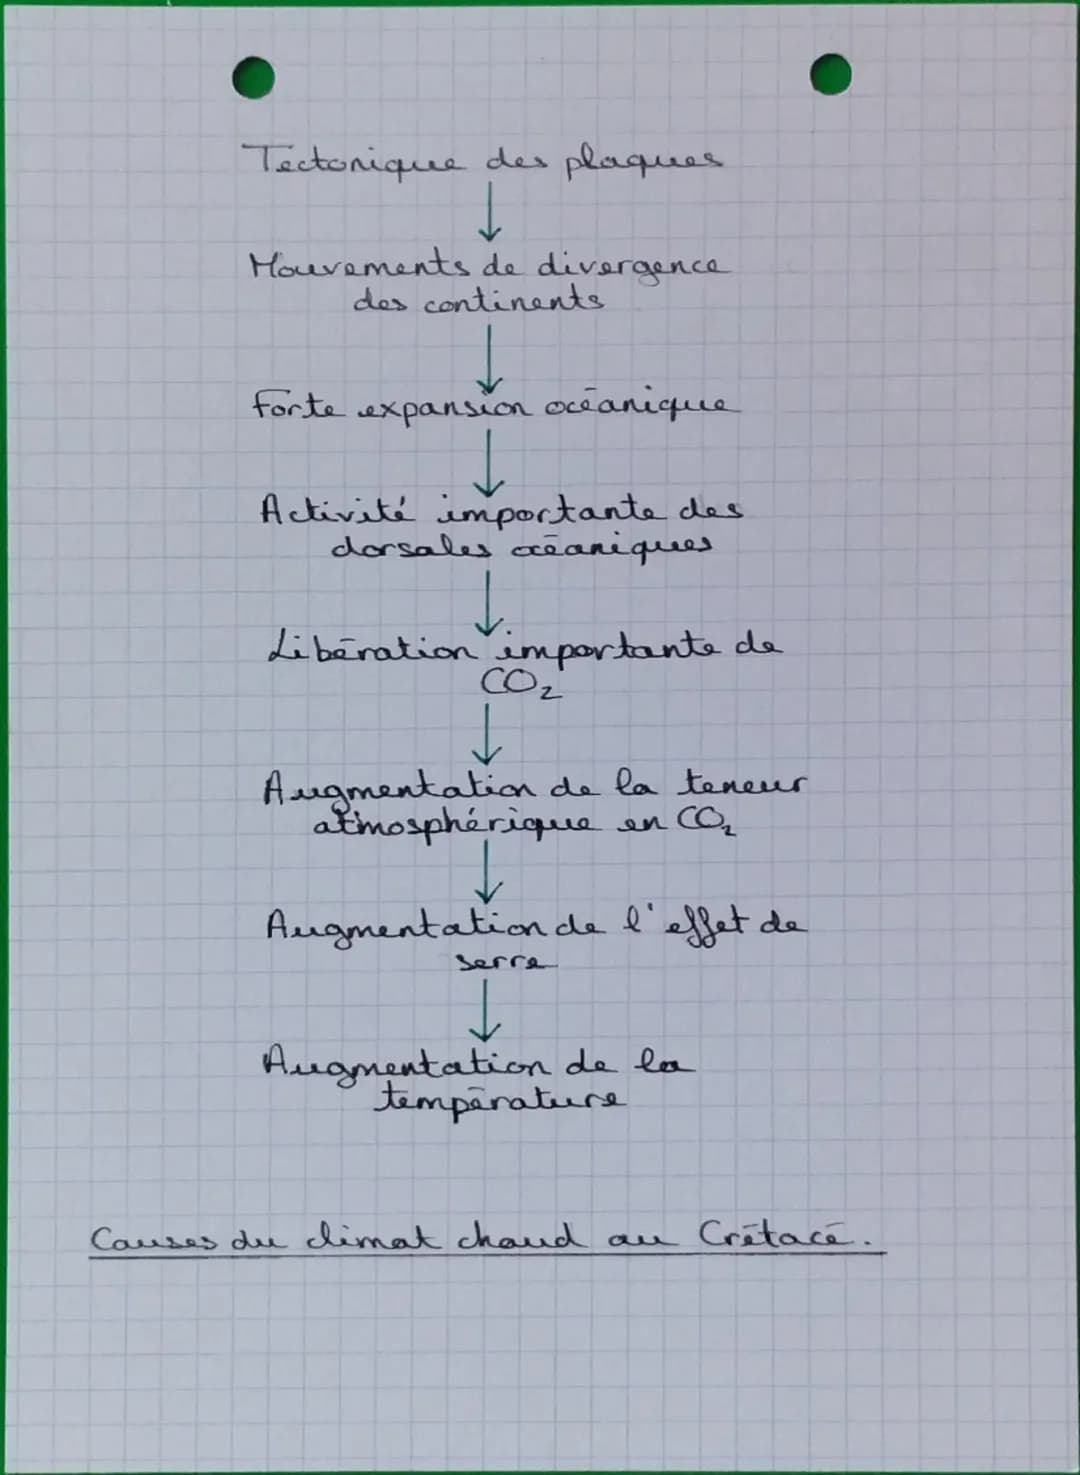 Tectonique des plaques
↓
Mouvements de divergence
des continents
↓
Forte expansion océanique
↓
Activité importante des
dorsales océaniques
↓
Libération importante de
CO₂
↓
Augmentation de la teneur
atmosphérique en CO₂
↓
Augmentation de l'effet de
serre
↓
Augmentation de la
température
Causes du climat chaud au Crétacé.